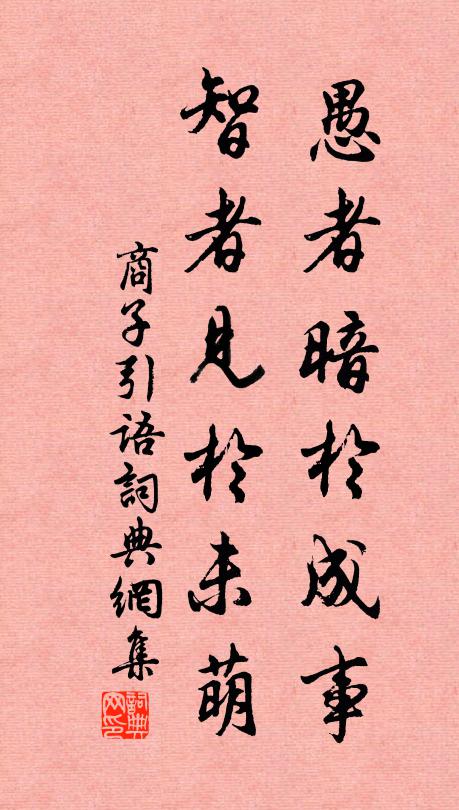 愚者暗於成事
智者見於未萌
商子引语詞典網集
詞典网印